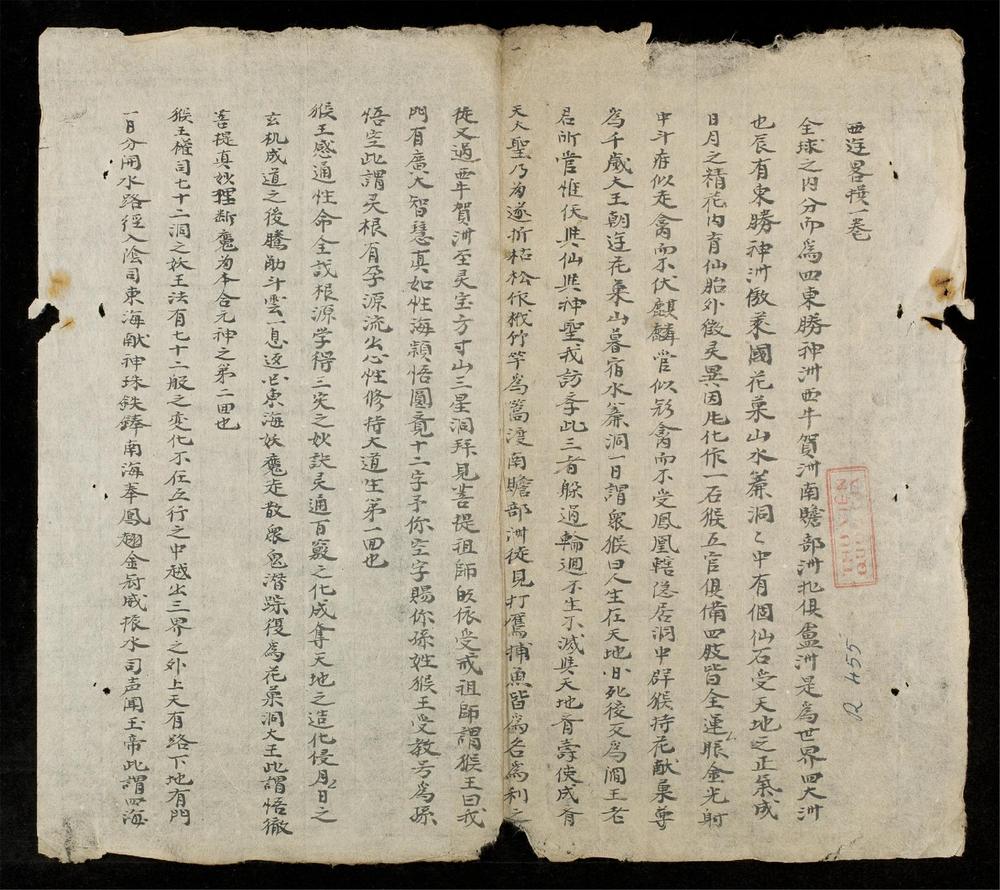 西遊畧撰一巻
全球之内分而為四東勝神洲西牛賀洲南贍部洲北俱盧洲是為世界四大洲
也辰有東勝神洲傲萊國花菓山水簾洞〻中有個仙石受天地之正氣成
日月之精花内育仙胎外徵灵異因此化作一石猴五官俱備四肢皆全運眼金光射
中斗府似走禽而不伏麒麟管似飛禽而不受鳳凰轄隐居洞中群猴持花献菓尊
為千歲大王朝遊花菓山暮宿水簾洞一日謂眾猴曰人生在天地日死後又為閻王老
君所管惟伏與仙與神聖我訪季此三者躲過輪迴不生不滅與天地齊壽使成齊
天大聖乃為遂折枯松作栰竹竿為篙渡南贍部洲徒見打鴈捕魚皆為名為利之
徒又過西牛賀洲至灵宝方寸山三星洞拜見菩提祖師皈依受戒祖師謂猴王曰我
門有廣大智慧真如性海頴悟圓竟十二字予你空字賜你孫姓猴王受教号為孫
悟空此謂灵根有孕源流出心性修持大道生第一囬也
猴王感通性命全說根源学得三災之妙訣灵通百竅之化成奪天地之造化侵月日之
玄机成道之後騰觔斗雲一息返囬東海妖魔走散眾鬼潛踪復為花菓洞大王此謂悟徹
菩提真妙理断魔為本合元神之第二囬也
猴王權司七十二洞之妖王法有七十二般之变化不在五行之中越出三界之外上天有路下地有門
一日分開水路徑入陰司東海献神珠鉄鋒南海奉鳳翅金冠威振水司声聞玉帝此謂四海
R 455